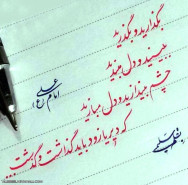 بگذارید و بگذرید
ببینید و دل مبندید
چشم بیندازید و دل مبازید
که دیر یا زود باید گذاشت و گذشت...
امام علی (ع)